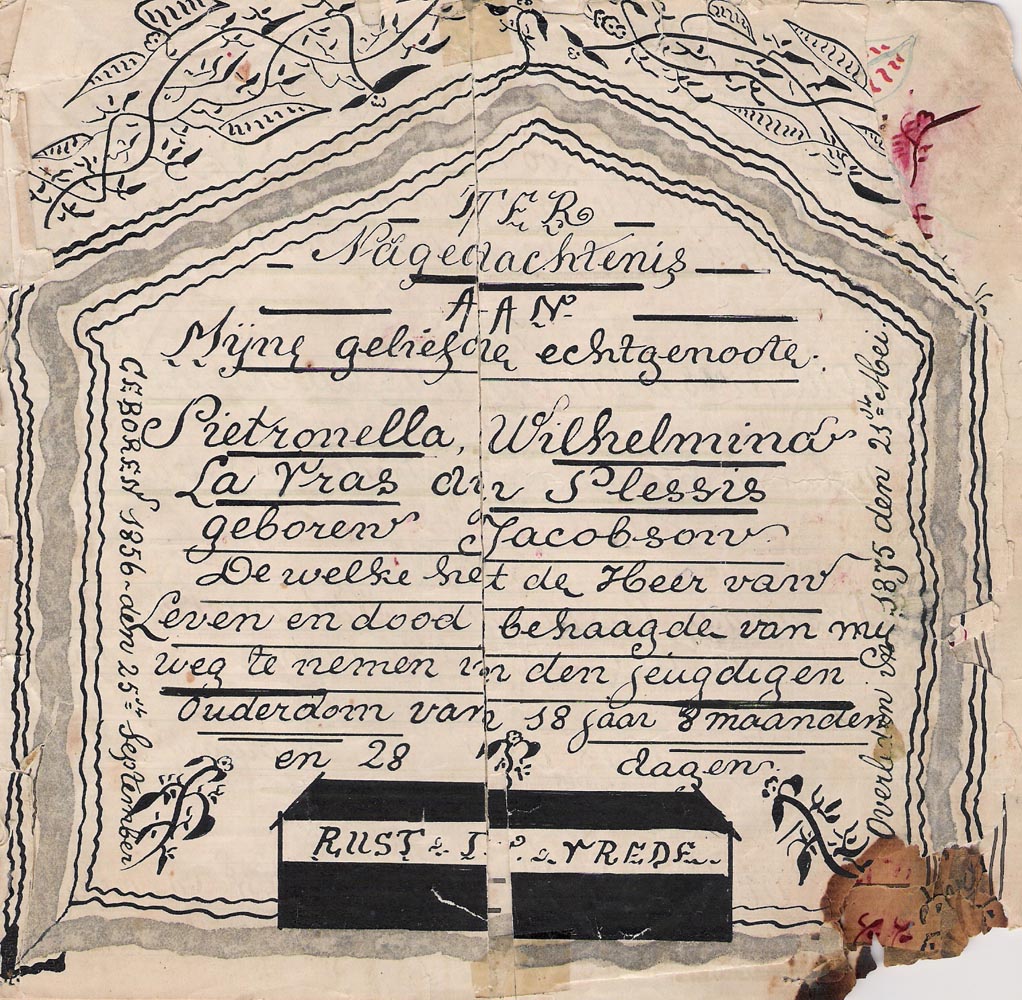 TER
Nagedachtenis
AAN
Mijne geliefde echtgenoote.
Pietronella, Wilhelmina
La Gras du Plessis
geboren Jacobson
De welke het de Heer van
Leven en dood behaagde van my
weg te nemen in den jeugdigen
Ouderdom van 18 jaar 8 maanden
en 28 dagen.
RUST IN VREDE.
GEBOREN 1856 den 25ste September
Overleden in 1875 den 23ste Mei